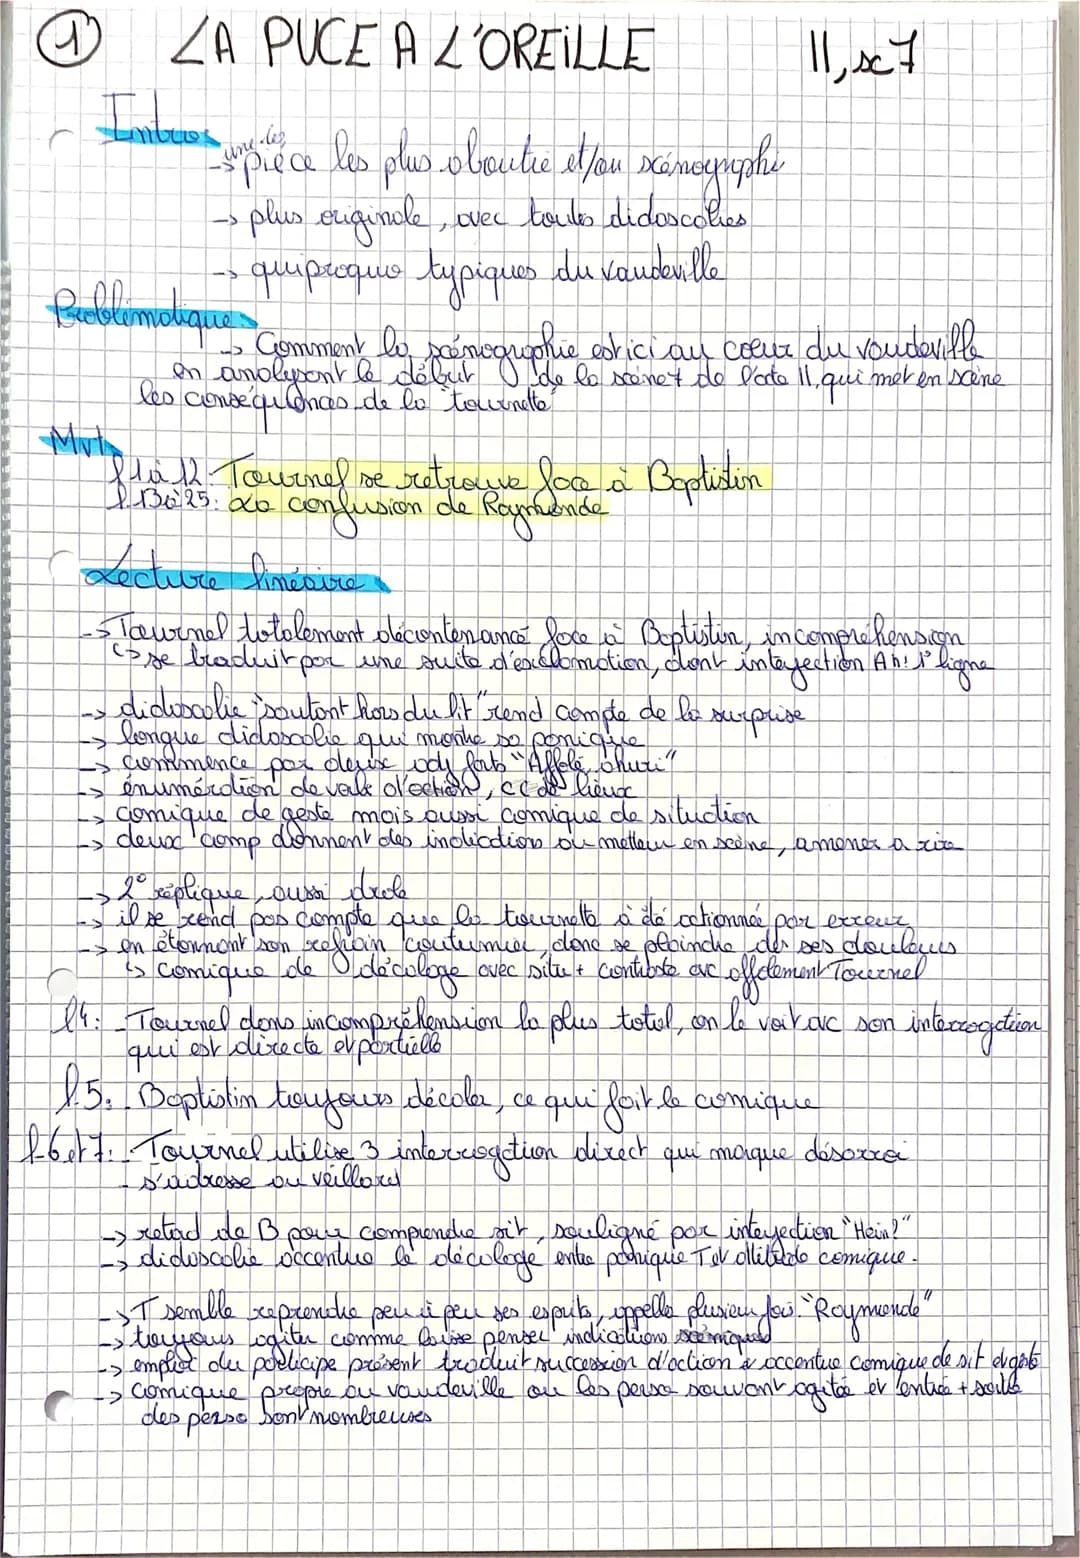 ① LA PUCE A L'OREILLE II, sc 7
Intro:
une des
-> pièce les plus aboutie et/ou scénographi
-> plus originale, avec toutes didascalies
-> quiproquo typiques du vaudeville
Problématique:
-> Comment la scénographie est ici au coeur du vaudeville
en analysant le début de la scène 7 de l'acte II, qui met en scène
les conséquences de la "tournette"
Mvts
l 1 à 12: Tournel se retrouve face à Baptistin
l. 13 à 25: La confusion de Raymonde
Lecture linéaire
-> Tournel totalement décontenancé face à Baptistin, incompréhension
↳ se traduit par une suite d'exclamation, dont interjection Ah! 1° ligne
-> didascalie "sautant hors du lit" rend compte de la surprise
-> longue didascalie qui montre sa panique
-> commence par deux adj forts "Affolé, ahuri"
-> énumération de verbe d'action, cc de lieux
-> comique de geste mais aussi comique de situation
-> deux comp donnent des indication au metteur en scène, amener a rire
-> 2° réplique, aussi drole
-> il se rend pas compte que la tournette à été actionnée par erreur
-> en étonnant son refrain coutumier, donc se plaindre des ses douleurs
↳ comique de décalage avec situ + contraste avc affolement Tournel
l4: - Tournel dans incompréhension la plus total, on le voit avc son interrogation
qui est directe et partielle
l.5: - Baptistin toujours décaler, ce qui fait le comique
l.6 et 7: - Tournel utilise 3 interrogation direct qui marque désarroi
- s'adresse au veillard
-> retard de B pour comprendre sit, souligné par interjection "Hein?"
-> didascalie accentue le décalage entre panique T et attitude comique.
-> T semble reprendre peu à peu ses esprits, appelle plusieur fois "Raymonde"
-> toujours agiter comme laisse penser indications scéniques
-> emploi du participe présent traduit succession d'action & accentue comique de sit et geste
-> comique propre au vaudeville ou les perso souvent agité et entrée + sortie
des perso sont nombreuses